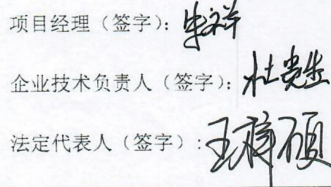 项目经理（签字）：
企业技术负责人（签字）：杜党生
法定代表人（签字）：王